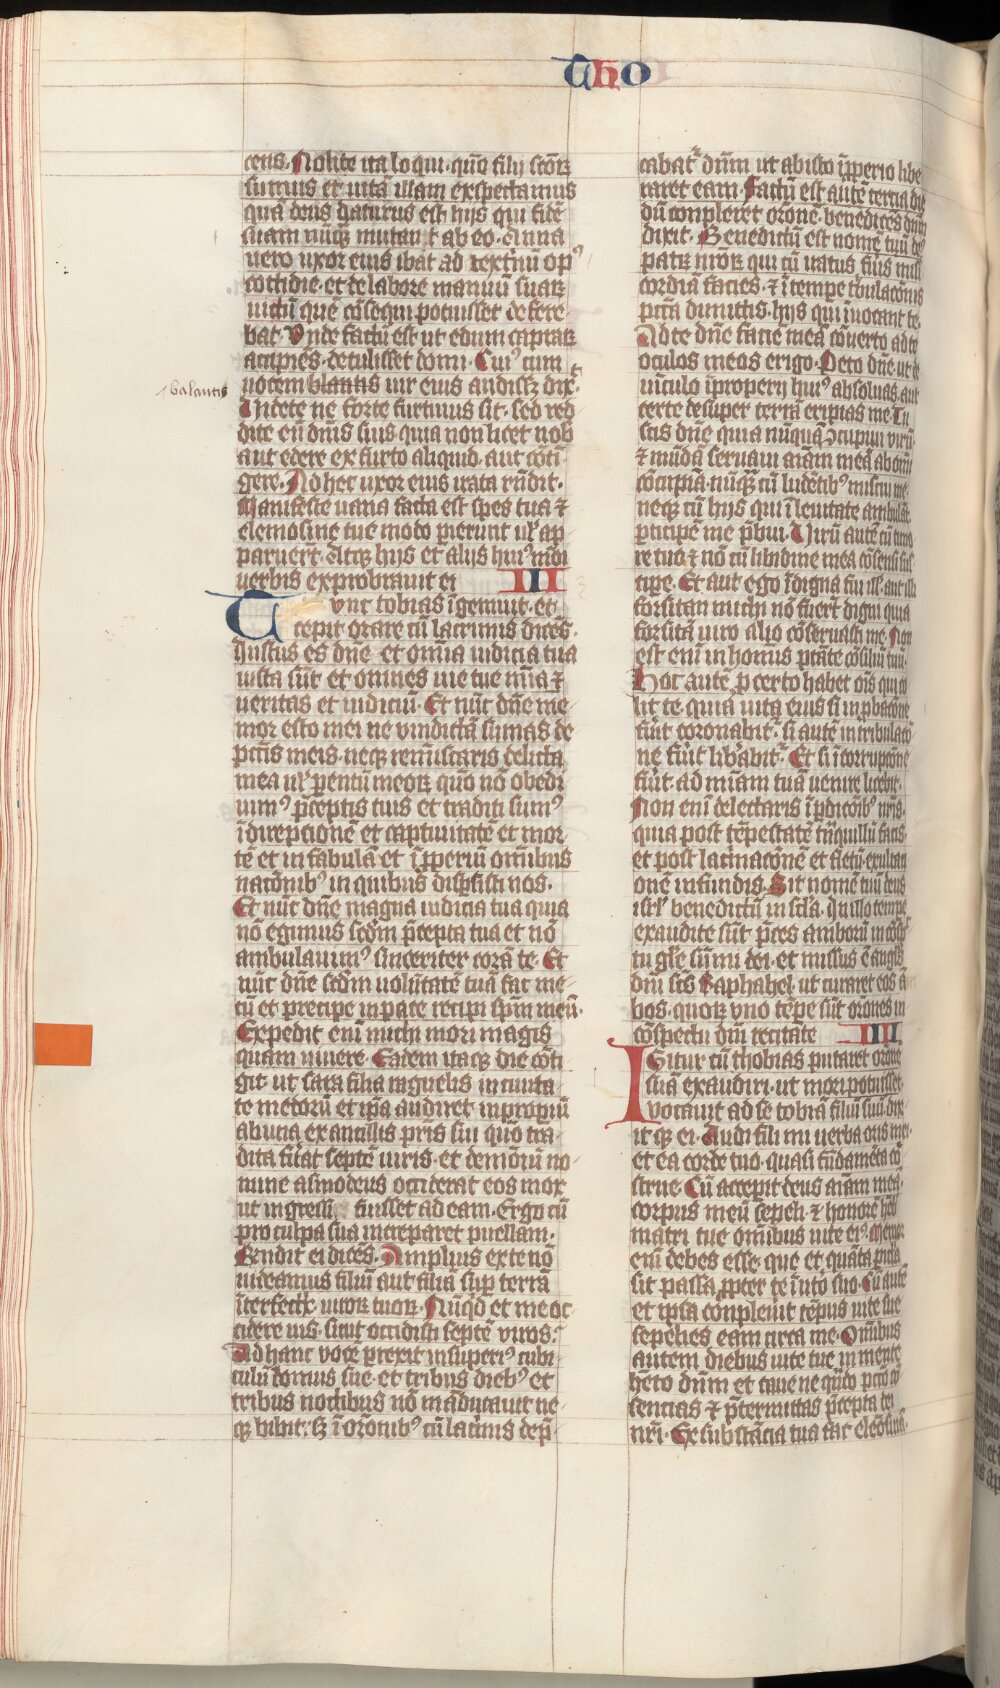 Tho
cens. Nolite ita loqui. quo᷑m filij sc̄oꝝ
sumus et uitā illam exspectamus
quā deus daturus est hijs qui fidē
suam nūꝗ mutant ab eo. Anna
uero uxor eius ibat ad textrinū opꝰ
cottidie. et de labore manuū suaꝝ
uictū quē cōsequi potuisset defere
bat. Vnde factū est ut edum capraꝝ
accipiēs. detulisset domi. Cuiꝰ cum
balantis
uocem blantis uir eius audiss; dix̄t.
Uidete ne forte furtiuus sit. sed red
dite eū dn̄is suis quia non licet nob
aut edere ex furto aliquid. aut cōtī
gere. Ad hec uxor eius irata rn̄dit.
Manifeste uana facta est spes tua ⁊
elemosine tue modo pierunt ul᷑ ap
paruert. Atꝗ hijs et alijs huiꝰmōi
uerbis exprobrauit ei III
Tunc tobias īgemuit. et
cepit orare cū lacrimis dicēs.
Justus es dn̄e et om̄ia iudicia tua
iusta sūt et omnes uie tue mīa ⁊
ueritas et iudiciū. Et nūc dn̄e me
mor esto mei ne uindictā sumas de
pccīs meis. neꝗ reminiscaris delicta
mea ul᷑ parentū meoꝝ quo᷑ nō obedi
uimꝰ p̄ceptis tuis et traditi sumꝰ
ī direpcionē et captiuitatē et mor
tē et in fabulā et ī īpperiū omibus
nacōnibꝰ in quibus disp̄sisti nos.
Et nūc dn̄e magna iudicia tua quia
nō egimus scdm p̄cepta tua et nō
ambulauimꝰ sinceriter corā te. Et
nūc dn̄e scdm uolūtatē tuā fac me
cū et precipe in pace recipi spm̄ meū.
Expedit enī michi mori magis
quam uiuere. Eadem itaꝗ die cōti
git ut sara filia raguelis in ciuita
te medorū et ip̄a audiret inproperiū
ab una ex ancillis pris sui quo᷑ tra
dita fūat septē uiris. et demoniū no
mine asmodeus occiderat eos mox
ut ingressi fuisset ad eam. Ergo cū
pro culpa sua increparet puellam.
Rendit ei dicēs. Amplius ex te nō
uideamus filiū aut filiā sup terrā
īterfectrix uiroꝝ tuoꝝ. Nūqd et me oc
cidere uis. sicut occidisti septē viros.
Ad hanc vocē prexit in superiꝰ cubi
culū domus sue. et tribus diebꝰ et
tribus noctibus nō māducauit ne
ꝗ bibit. ꝫ ī orōnibꝰ cū lacrimis dep̄
cabat᷑ dn̄m ut ab isto īpperio libe
raret eam. Factū est autē tercia die
dū compleret orōnē. benedicēs dn̄m
dixit. Benedictū est nomē tuū dēꝰ
patrū nr̄oꝝ qui cū iratus fūis mīs
cordiā facies. ⁊ ī tempe tribulacōnis
pccā dimittis. hijs qui inuocant te.
Ad te dn̄e faciē meā cōuerto ad te
oculos meos erigo. Peto dn̄e. ut de
uīculo īproperij huiꝰ absoluas. aut
certe desuper terrā eripias me. Tu
scis dn̄e quia nūquā ꝯcupiui virū.
⁊ mūdā seruaui aīam meā ab omī
cōcupīa. nūꝗ cū ludētibꝰ miscui me.
neꝗ cū hijs qui ī leuitate ambulāt.
pticipē me p̄bui. Uirū autē cū timo
re tuo ⁊ nō cū libidine mea cōsensi sus
cipe. Et aut ego īdigna fui ill᷑. aut illi
forsitan michi nō fuert digni quia
forsitā uiro alio cōseruasti me. Non
est enī in homīs ptāte cōsiliū tuū.
Hoc autē p certo habet ōis qui co
lit te. quia uita eius si in pbacōne
fūit coronabit᷑. si autē in tribulacō
ne fūit libabit᷑. Et si ī corrupcōne
fūit ad mīam tuā uenire licebit.
Non enī delectaris ī pdicōibꝰ nr̄is.
quia post tēpestatē trāquillū facis.
et post lacrimacōnē et fletū. exultaci
onē infundis. Sit nomē tuū deus
isrl᷑ benedictū in scl̄a. In illo tempe
exaudite sūt p̄ces amborū in cōsp̄c
tu gl̄e sūmi dei. et missus ē angls
dn̄i scs̄ Raphahel. ut curaret eos am
bos. quoꝝ vno tēpe sūt orōnes in
cōspectu dn̄i recitate IIII
Igitur cū thobias putaret orōne
suā exaudiri. ut mori potuisset.
vocauit ad se tobiā filiū suū dix
it ꝗ ei. Audi fili mi uerba oris mei.
et ea corde tuo. quasi fūdamēta cō
strue. Cū accepit deus aīam meā.
corpus meū sepeli. ⁊ honorē hēb
matri tue omibus uite eiꝰ. Memor
enī debes esse. que et quāta picla
sit passa ꝓpter te ī uto suo. Cū autē
et ipsa compleuit tēpus uite sue
sepelies eam circa me. Omibus
autem diebus uite tue in mente
hēto dn̄m et caue ne qn̄do pccō cō
sencias ⁊ p̄termittas p̄cepta dei
nr̄i. Ex substācia tua fac elēosinā.